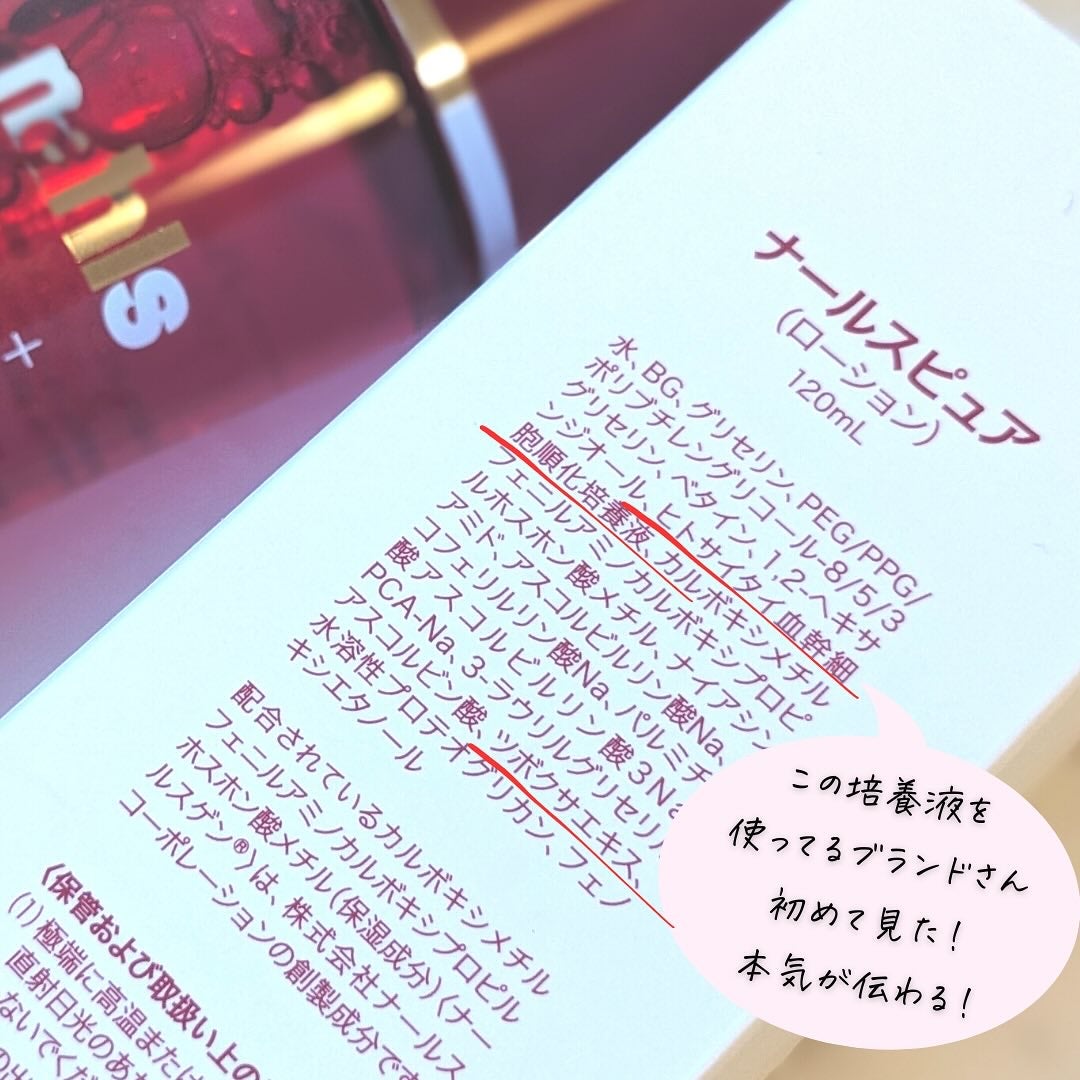 ナールスピュア
(ローション)
120mL
水、BG、グリセリン、PEG/PPG/
ポリブチレングリコール-8/5/3
グリセリン、ベタイン、1,2-ヘキサ
ンジオール、ヒトサイタイ血幹細
胞順化培養液、カルボキシメチル
フェニルアミノカルボキシプロピ
ルホスホン酸メチル、ナイアシン
アミド、アスコルビルリン酸Na、
コフェリルリン酸Na、パルミチ
酸アスコルビルリン酸3Na
PCA-Na、3-ラウリルグリセリ
アスコルビン酸、ツボクサエキス、
水溶性プロテオグリカン、フェノ
キシエタノール
配合されているカルボキシメチル
フェニルアミノカルボキシプロピル
ホスホン酸メチル(保湿成分)〈ナー
ルスゲン®〉は、株式会社ナールス
コーポレーションの創製成分です
〈保管および取扱い上の
(1)極端に高温または
直射日光のあ
ないでくだ
この培養液を
使ってるブランドさん
初めて見た!
本気が伝わる!